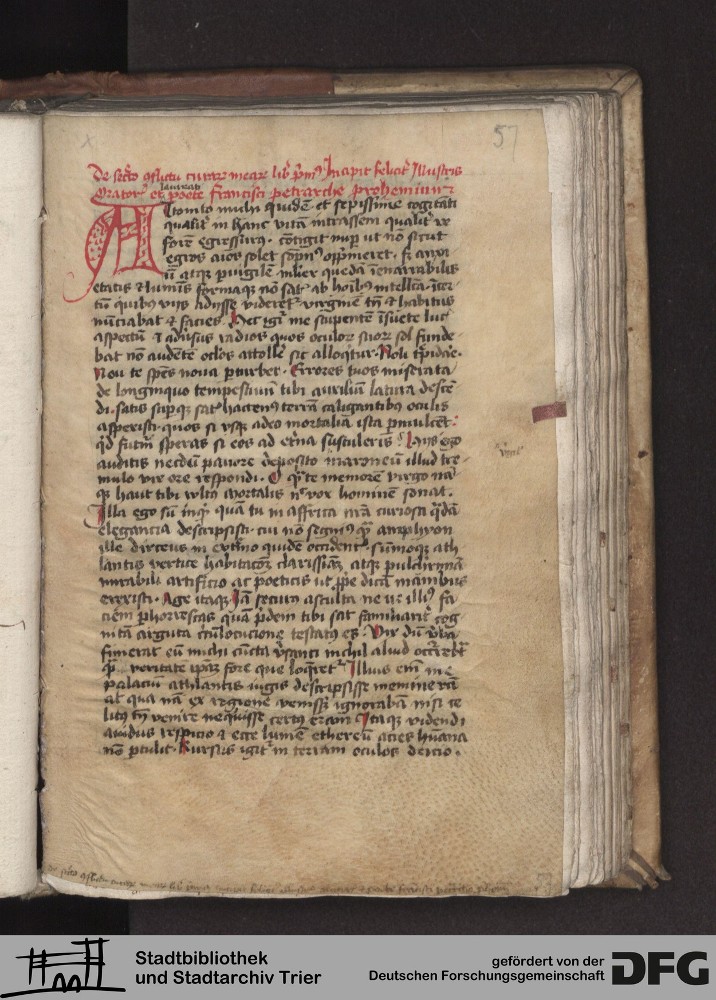 57
De secreto conflictu curarum mearum liber primus Incipit feliciter Illustris
laureati
Oratoris et poete francisci petrarche prohemium
Attonito michi quidem et sepissime cogitanti
qualiter in hanc vitam intrassem qualiter ve
forem egressurus. contigit nuper ut non sicut
egros animos solet sompnus opprimeret. sed anxi
um atque pervigilem mulier quedam inenarrabilis
etatis et luminis formaque non satis ab hominibus intellecta incer
tum quibus viis adiisse videretur virginem tamen et habitus
nunciabat et facies. Hec igitur me stupentem insuete lucis
aspectum et adversus radios quos oculorum suorum sol funde
bat non audentem oculos attollere sic alloquitur. Noli trepidare.
Nou te species nova perturbet. Errores tuos miserata
de longinquo tempestivum tibi auxilium latura descen
di. satis superque satis hactenus terram caligantibus oculis
aspexisti. quos si usque adeo mortalia ista permulcent.
quid futurum speras si eos ad eterna sustuleris? Hiis ego
auditis necdum pavore deposito maroneum illud tre
mulo vix ore respondi. O quam te memorem virgo nam
que haut tibi vultus mortalis nec vox hominem sonat.
Illa ego sum inquit quam tu in affrica nostra curiosa quadam
elegancia descripsisti. cui non segnius quam amphyon
ille dirceus in extremo quidem occidentis summoque ath
lantis vertice habitacionem clarissimam atque pulcherrimam
mirabili artificio ac poeticis ut proprie dicam manibus
erexisti. Age itaque iam securus asculta ne ve illius fa
ciem perhorrescas quam pridem tibi satis familiariter cog
nitam arguta circumlocucione testatus es. Vix dum verba
finierat cum michi cuncta versanti nichil aliud occurrebat
quam veritatem ipsam fore que loqueretur. Illius enim me
palacium athlantis iugis descripsisse memineram
at qua nam ex regione venisset ignorabam nisi ce
litus tamen venire nequiisse certus eram. Itaque videndi
avidus respicio et ecce lumen ethereum acies humana
non pertulit. Rursus igitur in terram oculos deicio.
Stadtbibliothek
und Stadtarchiv Trier
gefördert von der
Deutschen Forschungsgemeinschaft
DFG